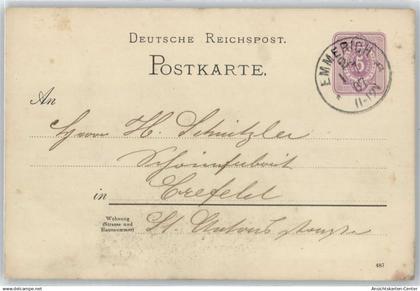 DEUTSCHE REICHSPOST.
POSTKARTE.
EMMERICH
11-12
5
An
Herrn H. Schnitzler
in Crefeld
Wohnung
(Strasse und
Hausnummer)
St. Antonstrasse
487
Ansichtskarten-Center